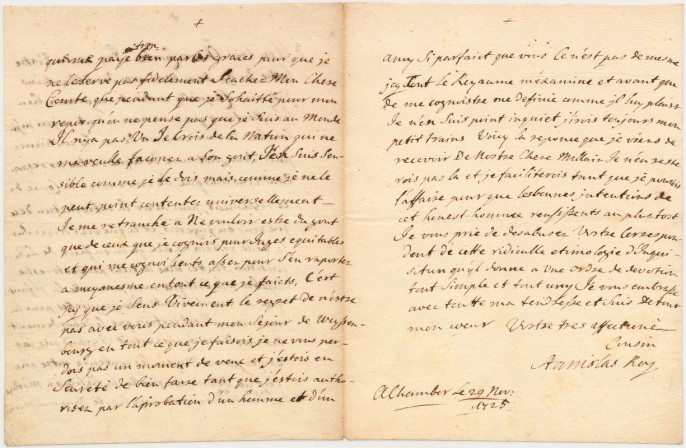 qui me paye bien par ses graces pour que je
ne le serve pas fidelement Scachez Mon Chere
Comte, que pendant que je souhaitte pour mon
repos qu'on ne pense pas que je suis au Monde
Il n'y a pas Un Je Crois de la Nation qui ne
me veulle façoner a Son goût, J'en Suis Sen-
sible comme je le dois, mais comme je ne le
peut point contenter universellement
Je me retranche a Ne vouloir estre du goût
que de ceux que je cognois pour Juges equitables
et qui me cognoissents assez pour s'en raporter
a moymesme en tout ce que je faicts, C'est
icy que je Sens Vivement le regret de n'estre
pas avec vous pendant mon Sejour de Weyssen-
bourg en tout ce que je faisois je ne vous per-
dois pas un moment de veue et j'estois en
Seureté de bien faire tant que j'estois autho-
risez par l'aprobation d'un homme et d'un
amy Si parfaict que vous Ce n'est pas de mesme
icy Tout le Royaume m'examine et avant que
de me cognoistre me definie comme il luy plait
Je n'en Suis point inquiet j'irois toujours mon
petit trains Voicy la reponce que je viens de
recevoir De Nostre Chere Je n'en res-
rois pas la et je faciliterois tant que je pourrois
l'affaire pour que les bonnes intentions de
cet honest homme reussissents au plus tost
Je vous prie de desabuser Vostre Corespon-
dent de cette ridiculle etimologie d'Inqui-
sition qu'il donne a Une Ordre de devotion
tout Simple et tout uny Je vous embrasse
avec toutte ma tendresse et Suis de tout
mon coeur Vostre tres affectionné
Cousin
Stanislas Roy
A Chambor le 29 Nov:
1725